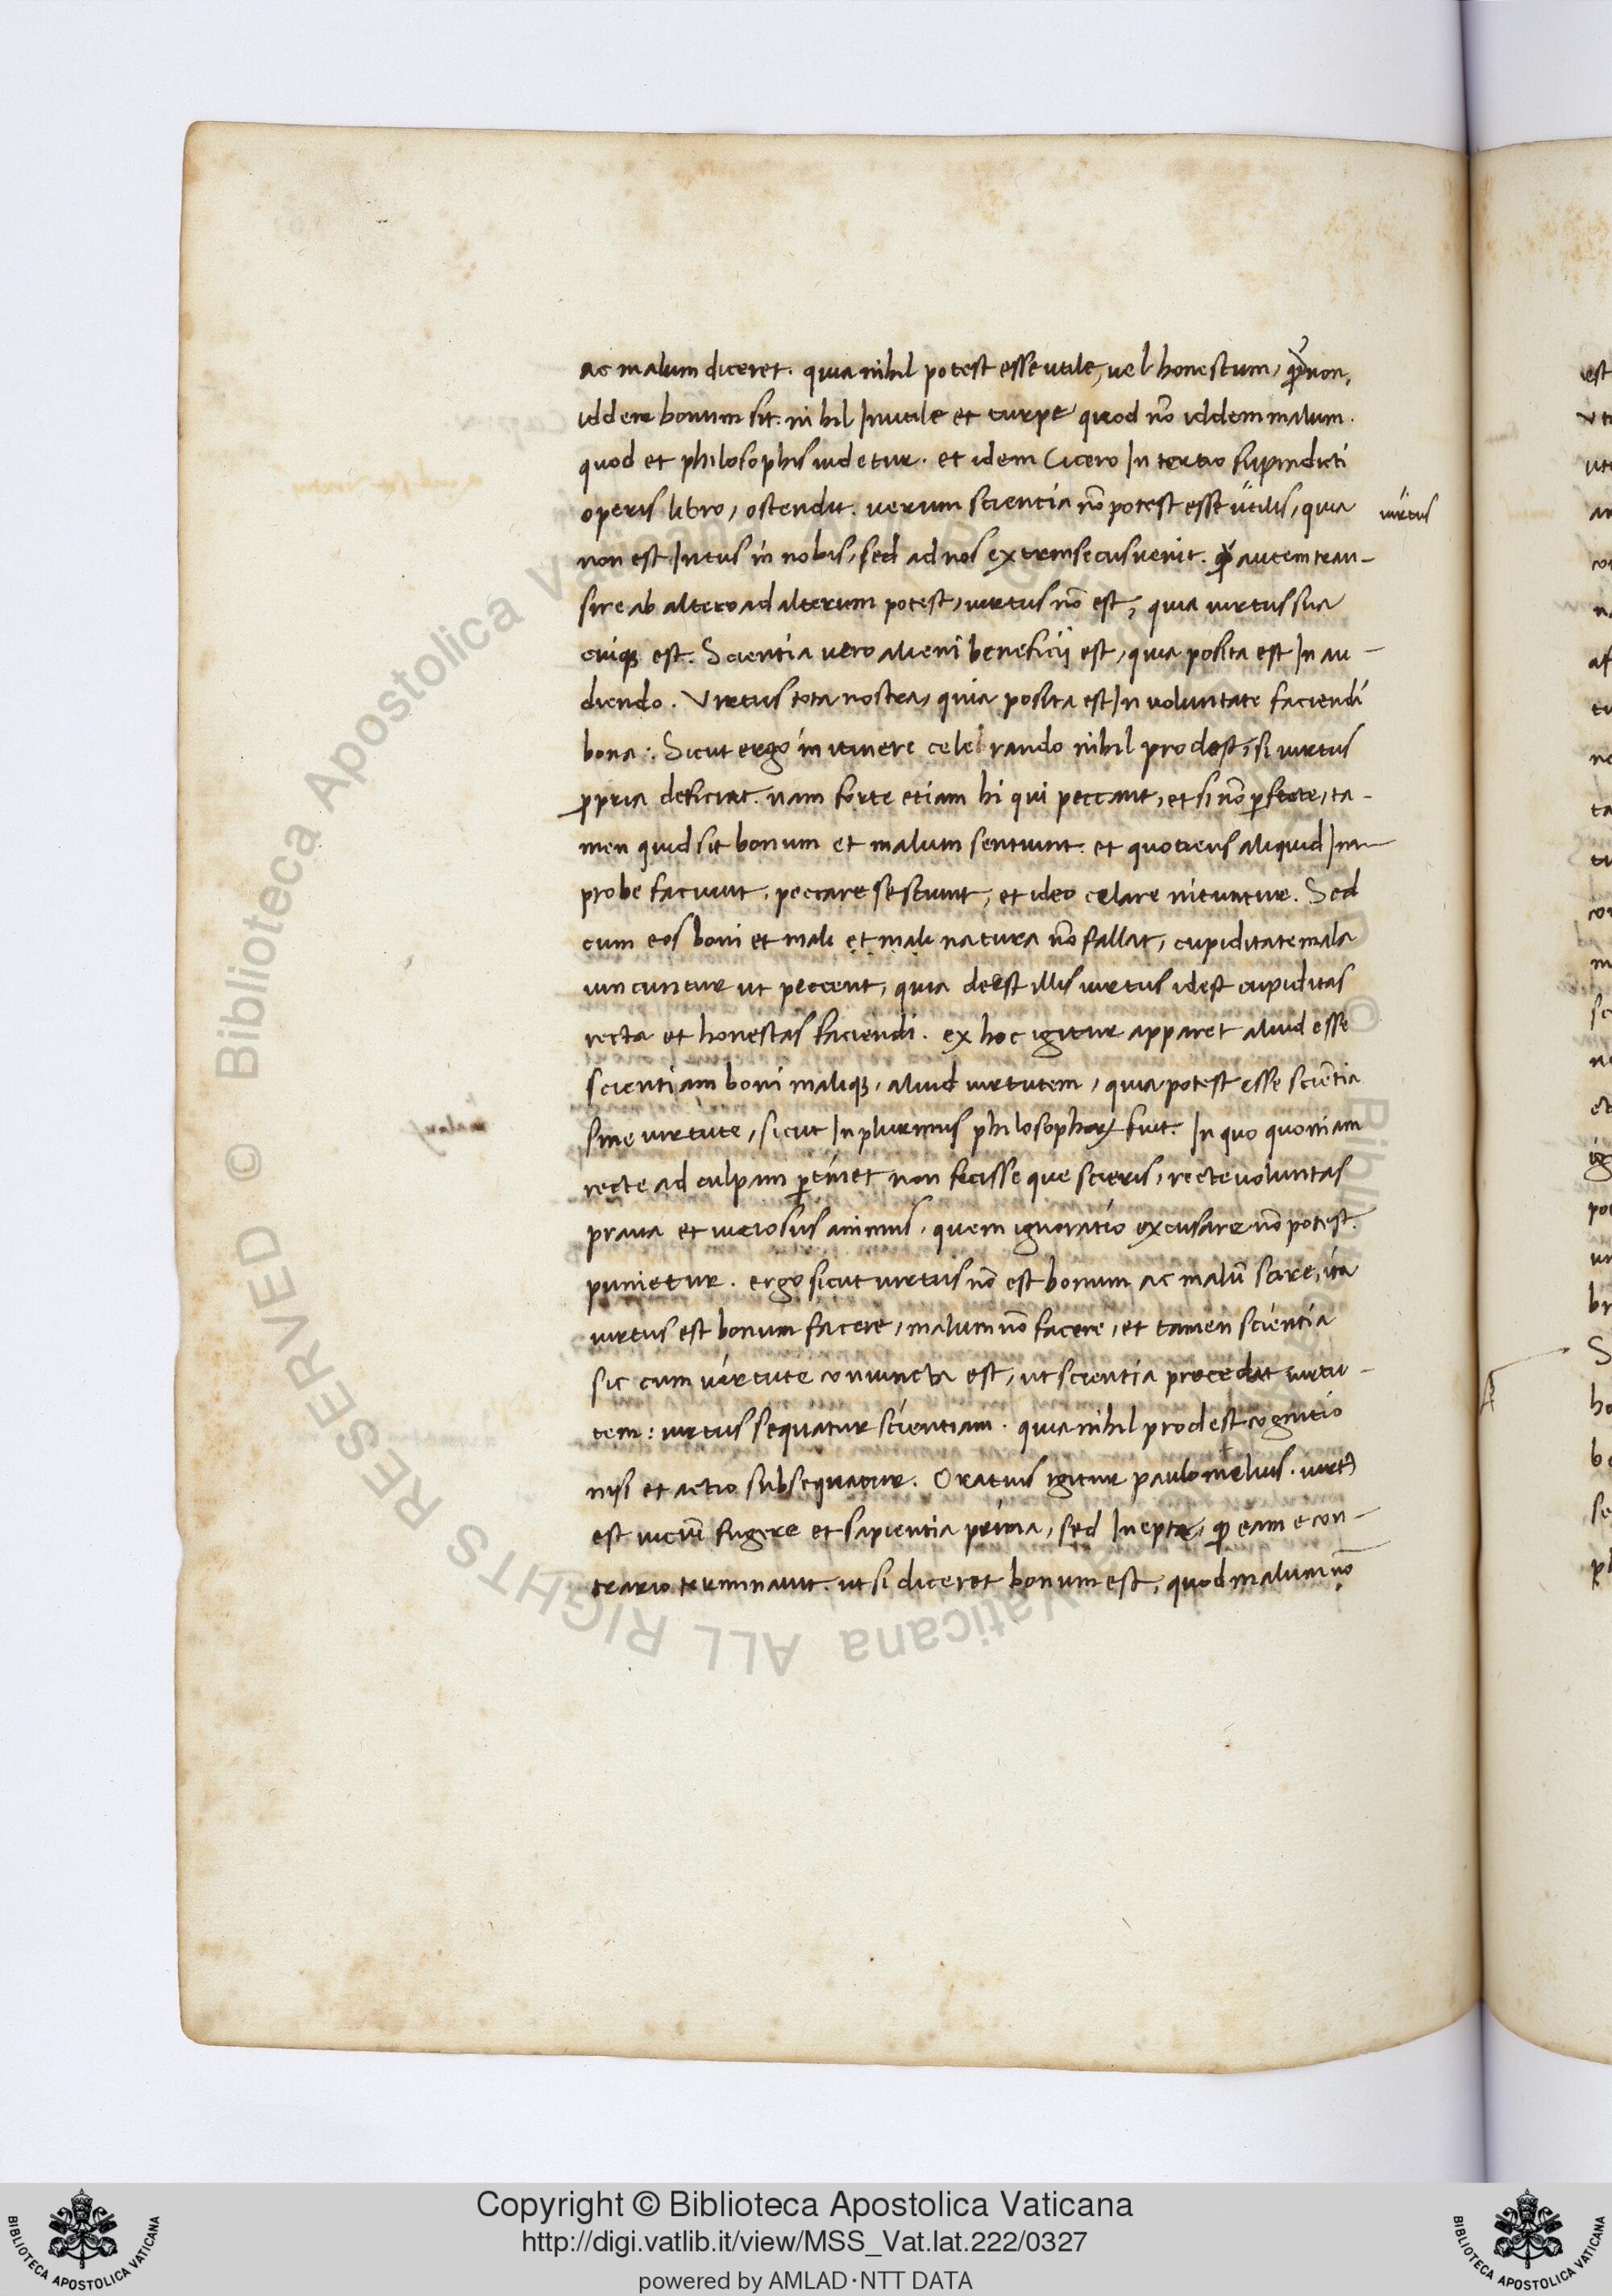 ac malum diceret. quia nihil potest esse utile, vel honestum, qđ non,
iddem bonum sit. nihil Inutile et turpe quod nō iddem malum.
quod et philosophis uidetur. et idem Cicero In tertio supradicti
operis libro, ostendit. verum scientia nō potest esse utilis, quia
uirtus
non est Intus in nobis, sed ad nos extrinsecus uenit. qđ autem tran-
sire ab altero ad alterum potest, uirtus nō est, quia uirtus sua
cuiq; est. Scientia vero alieni beneficij est, quia posita est In au-
diendo. Virtus tota nostra, quia posita est In voluntate faciendi
bona: Sicut ergo in itinere celebrando nihil prodest, si uirtus
ꝓpria deficiat. nam forte etiam hi qui peccant, et si nō ꝑfecte, ta-
men quid sit bonum et malum sentiunt. et quotiens aliquid Im-
probe faciunt, peccare se sciunt, et ideo celare nituntur. Sed
cum eos boni et mali et mali natura nō fallat, cupiditate mala
uincuntur ut peccent, quia deest illis uirtus idest cupiditas
recta et honestas faciendi. ex hoc igitur apparet aliud esse
scientiam boni maliq;, aliud uirtutem, quia potest esse sciētia
sine uirtute, sicut In plurimus philosophoꝝ fuit. In quo quoniam
recte ad culpam ꝑtinet non fecisse que scieris, recte voluntas
praua et uiciosus animus, quem ignoratio excusare nō potest.
punietur. ergo sicut uirtus nō est bonum ac malū scire, ita
uirtus est bonum facere, malum nō facere, et tamen scientia
sic cum uirtute coniuncta est, ut scientia precedat uirtu-
tem: uirtus sequatur scientiam. quia nihil prodest cognitio
nisi et actio subsequatur. Oratius igitur paulo melius. uirtꝰ
est uiciū fugere et sapientia prima, sed Inepte, qđ eam e con-
trario terminauit. ut si diceret bonum est, quod malum nō
Copyright © Biblioteca Apostolica Vaticana
http://digi.vatlib.it/view/MSS_Vat.lat.222/0327
powered by AMLAD·NTT DATA
BIBLIOTECA APOSTOLICA VATICANA
BIBLIOTECA APOSTOLICA VATICANA